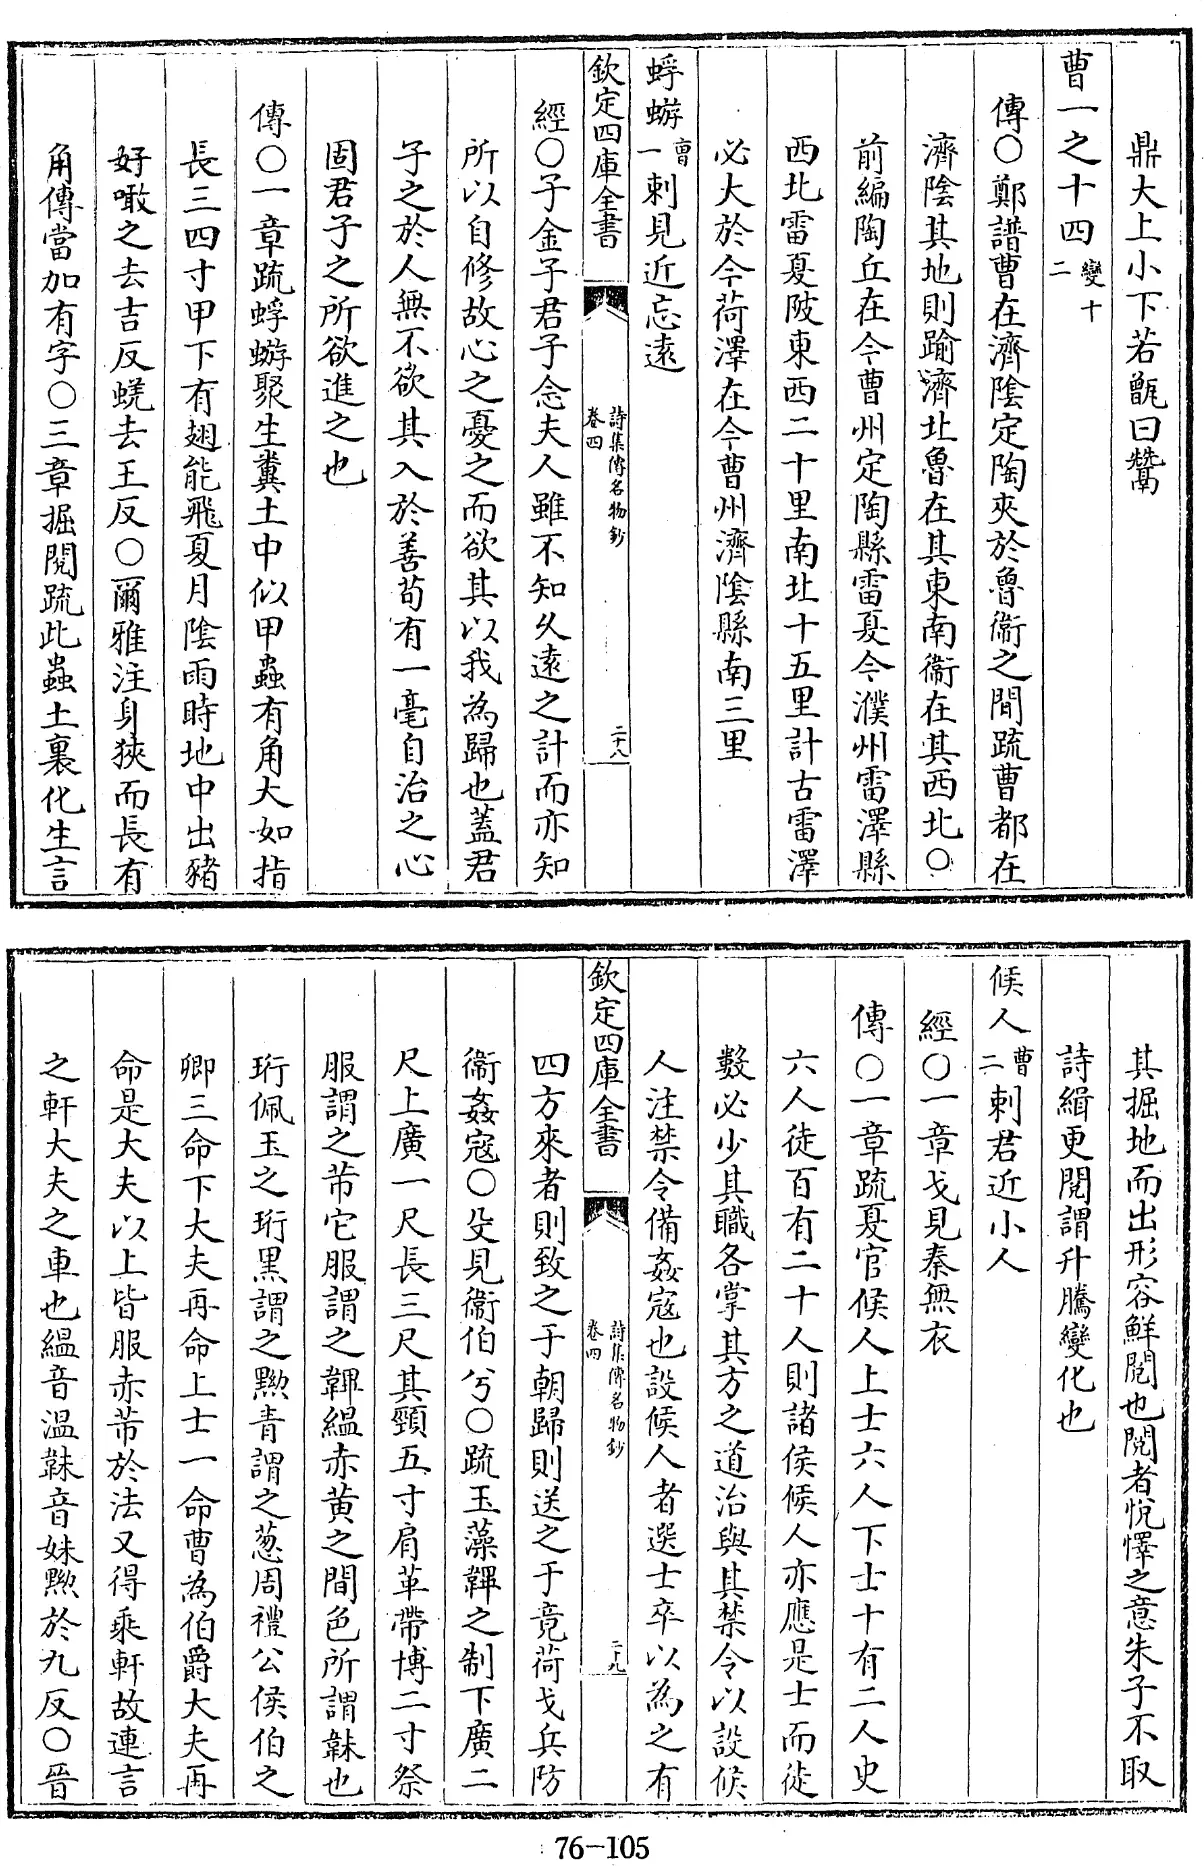 鼎大上小下若甑曰鬵
曹一之十四變十二
傳〇鄭譜曹在濟陰定陶夾於魯衞之間疏曹都在
濟陰其地則踰濟北魯在其東南衞在其西北〇
前編陶丘在今曹州定陶縣雷夏今濮州雷澤縣
西北雷夏陂東西二十里南北十五里計古雷澤
必大於今荷澤在今曹州濟陰縣南三里
蜉蝣曹一刺見近忘遠
欽定四庫全書
詩集傳名物鈔
卷四
二十八
經〇子金子君子念夫人雖不知久遠之計而亦知
所以自修故心之憂之而欲其以我為歸也蓋君
子之於人無不欲其入於善苟有一毫自治之心
固君子之所欲進之也
傳〇一章疏蜉蝣聚生糞土中似甲蟲有角大如指
長三四寸甲下有翅能飛夏月陰雨時地中出豬
好噉之去吉反蜣去王反〇爾雅注身狹而長有
角傳當加有字〇三章掘閱疏此蟲土裏化生言
其掘地而出形容鮮閱也閱者悅懌之意朱子不取
詩緝更閱謂升騰變化也
候人曹二刺君近小人
經〇一章戈見秦無衣
傳〇一章疏夏官候人上士六人下士十有二人史
六人徒百有二十人則諸侯候人亦應是士而徒
數必少其職各掌其方之道治與其禁令以設候
人注禁令備姦寇也設候人者選士卒以為之有
欽定四庫全書
詩集傳名物鈔
卷四
二十九
四方來者則致之于朝歸則送之于竟荷戈兵防
衞姦寇〇殳見衞伯兮〇疏玉藻韠之制下廣二
尺上廣一尺長三尺其頸五寸肩革帶博二寸祭
服謂之芾它服謂之韠縕赤黃之間色所謂韎也
珩佩玉之珩黑謂之黝青謂之葱周禮公侯伯之
卿三命下大夫再命上士一命曹為伯爵大夫再
命是大夫以上皆服赤芾於法又得乘軒故連言
之軒大夫之車也縕音溫韎音妹黝於九反〇晉
76-105